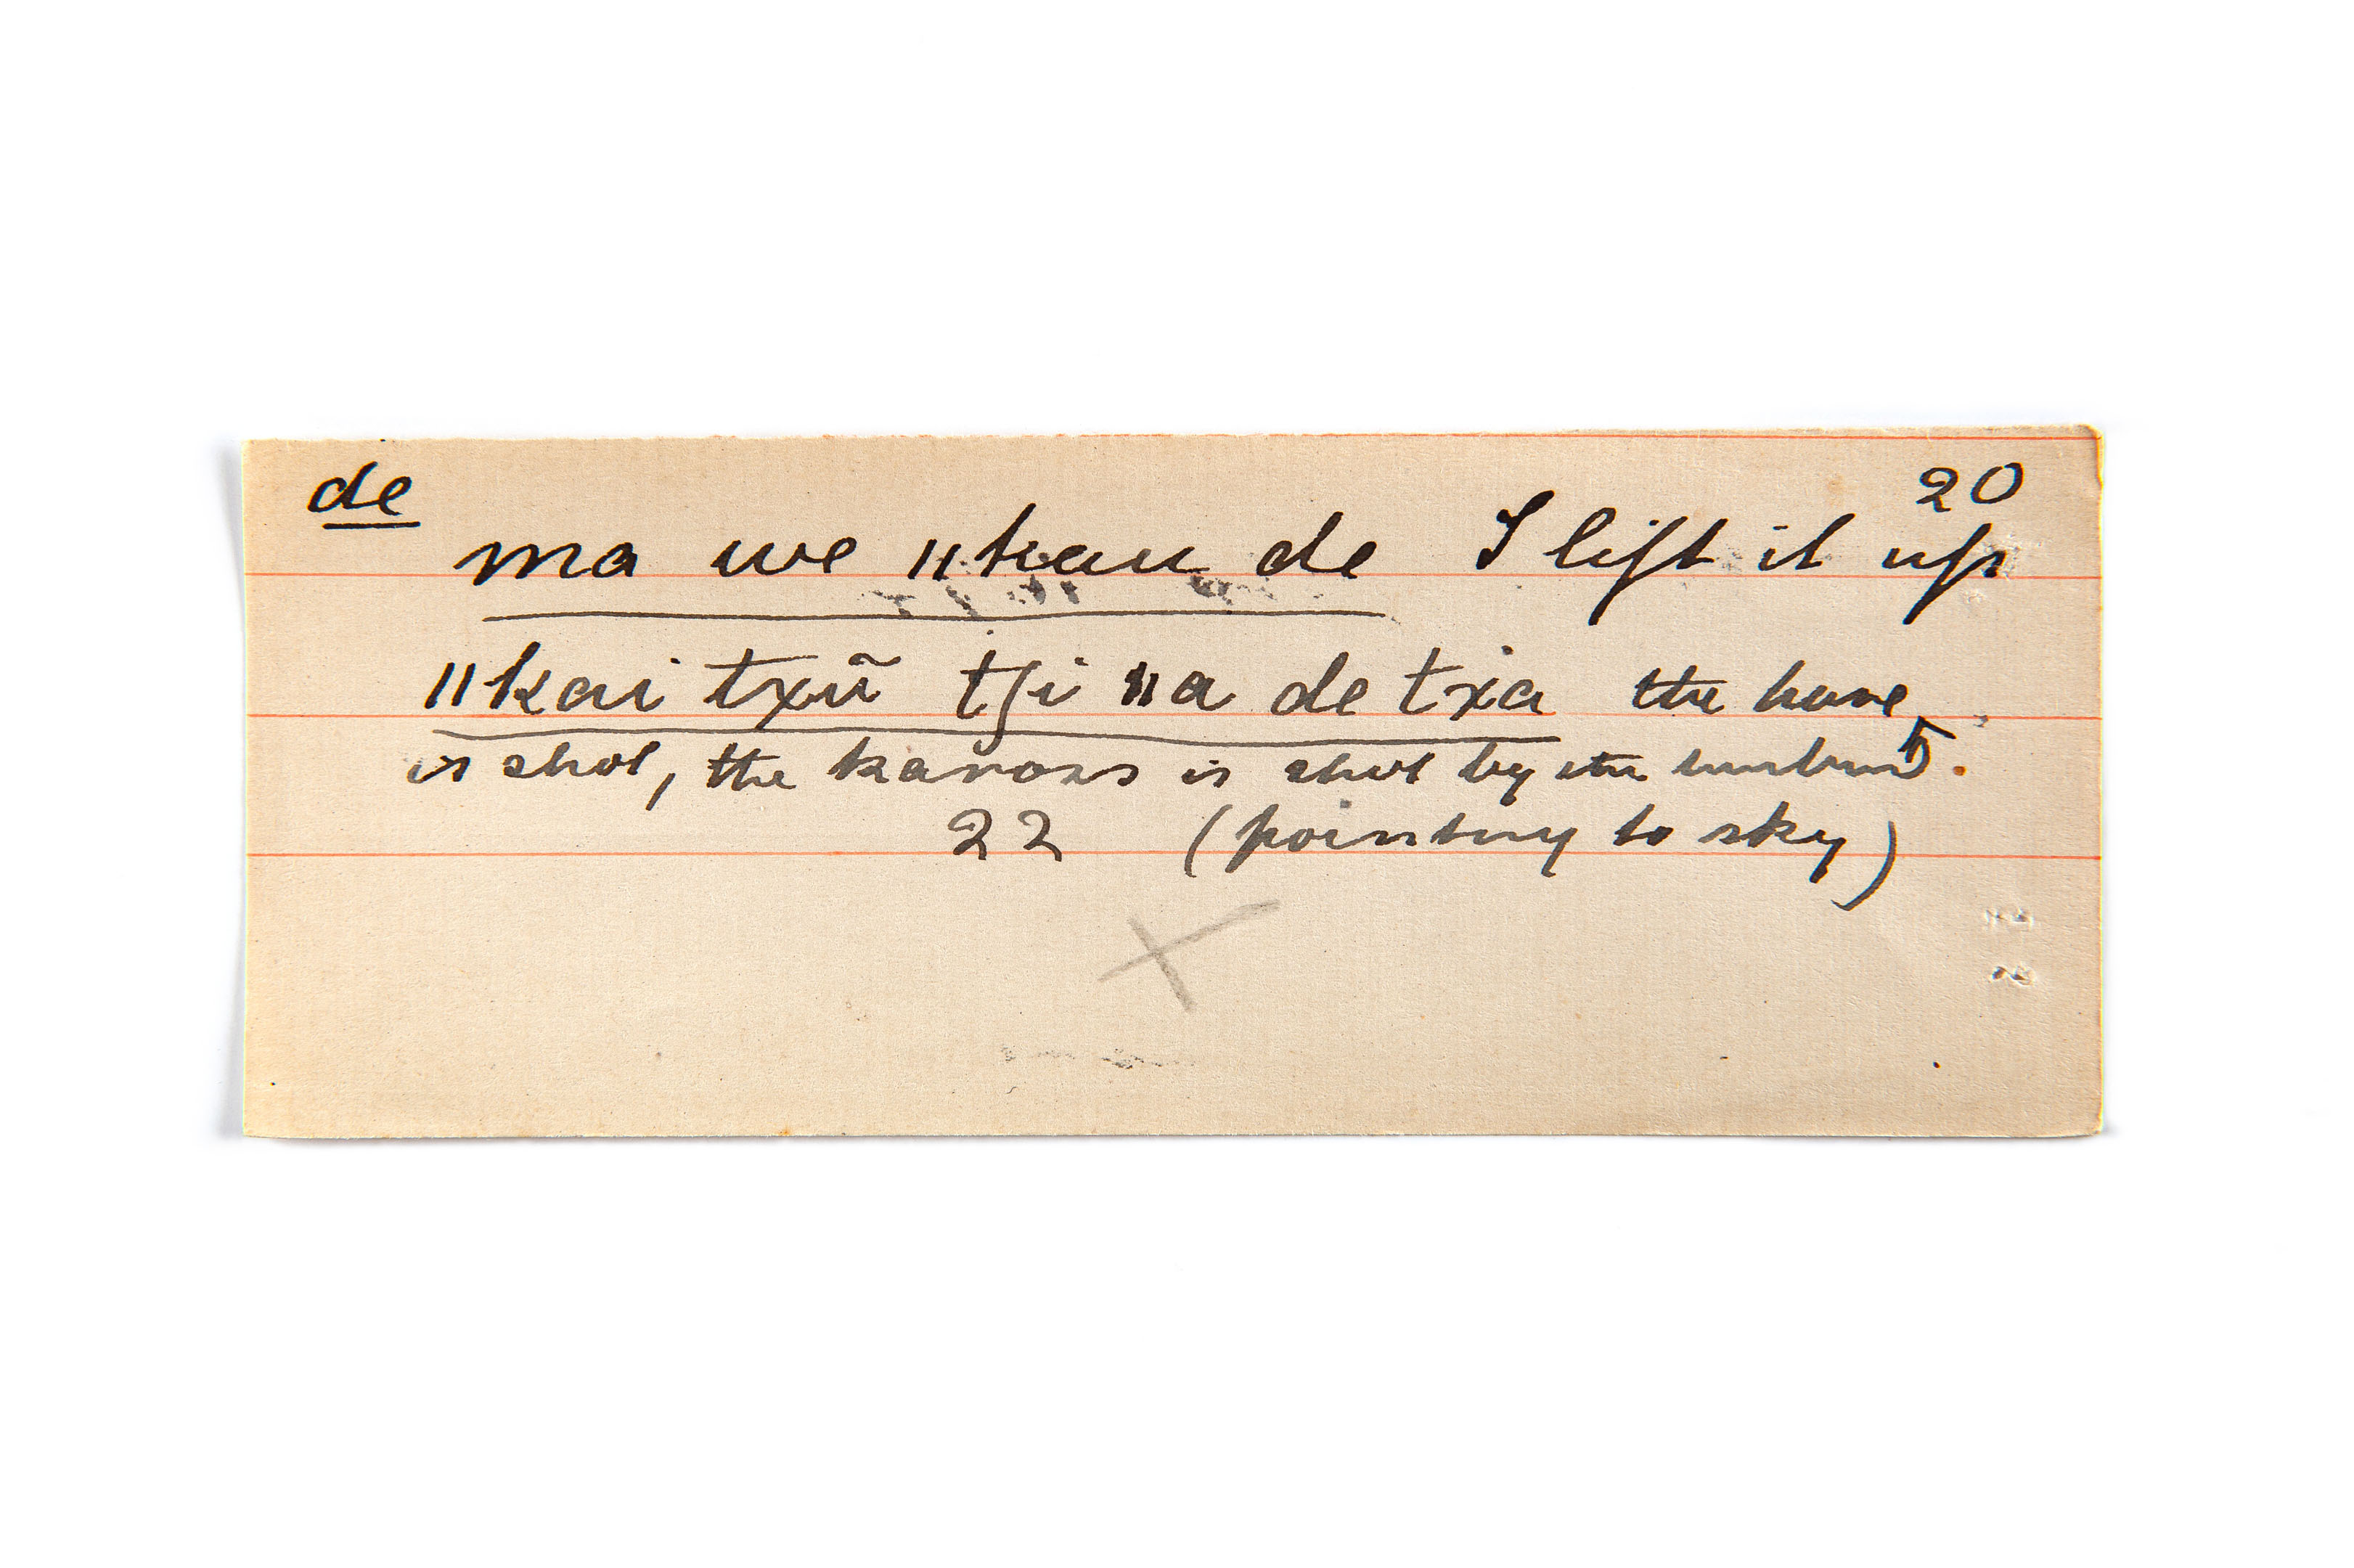 de 20
ma we ǁkau de I lift it up
ǁkai txũ tʃi ǁa de txa the hare
is shot, the kaross is shot by the husband.
22 (pointing to sky)